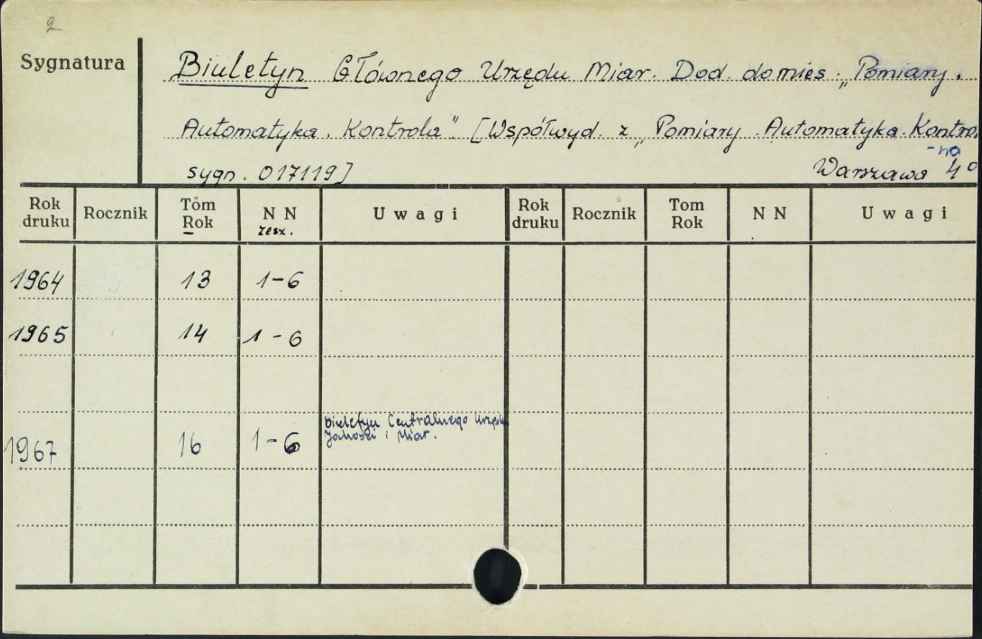 2
Sygnatura
Biuletyn Głównego Urzędu Miar. Dod. do mies. „Pomiary.
Automatyka. Kontrola". [Współwyd. z „Pomiary. Automatyka. Kontro-
sygn. 017119] Warszawa 4°
Rok druku Rocznik Tom Rok N N zesz. U w a g i Rok druku Rocznik Tom Rok N N U w a g i
1964 13 1-6
1965 14 1-6
1967 16 1-6 Biuletyn Centralnego Urzędu
Jakości i Miar.